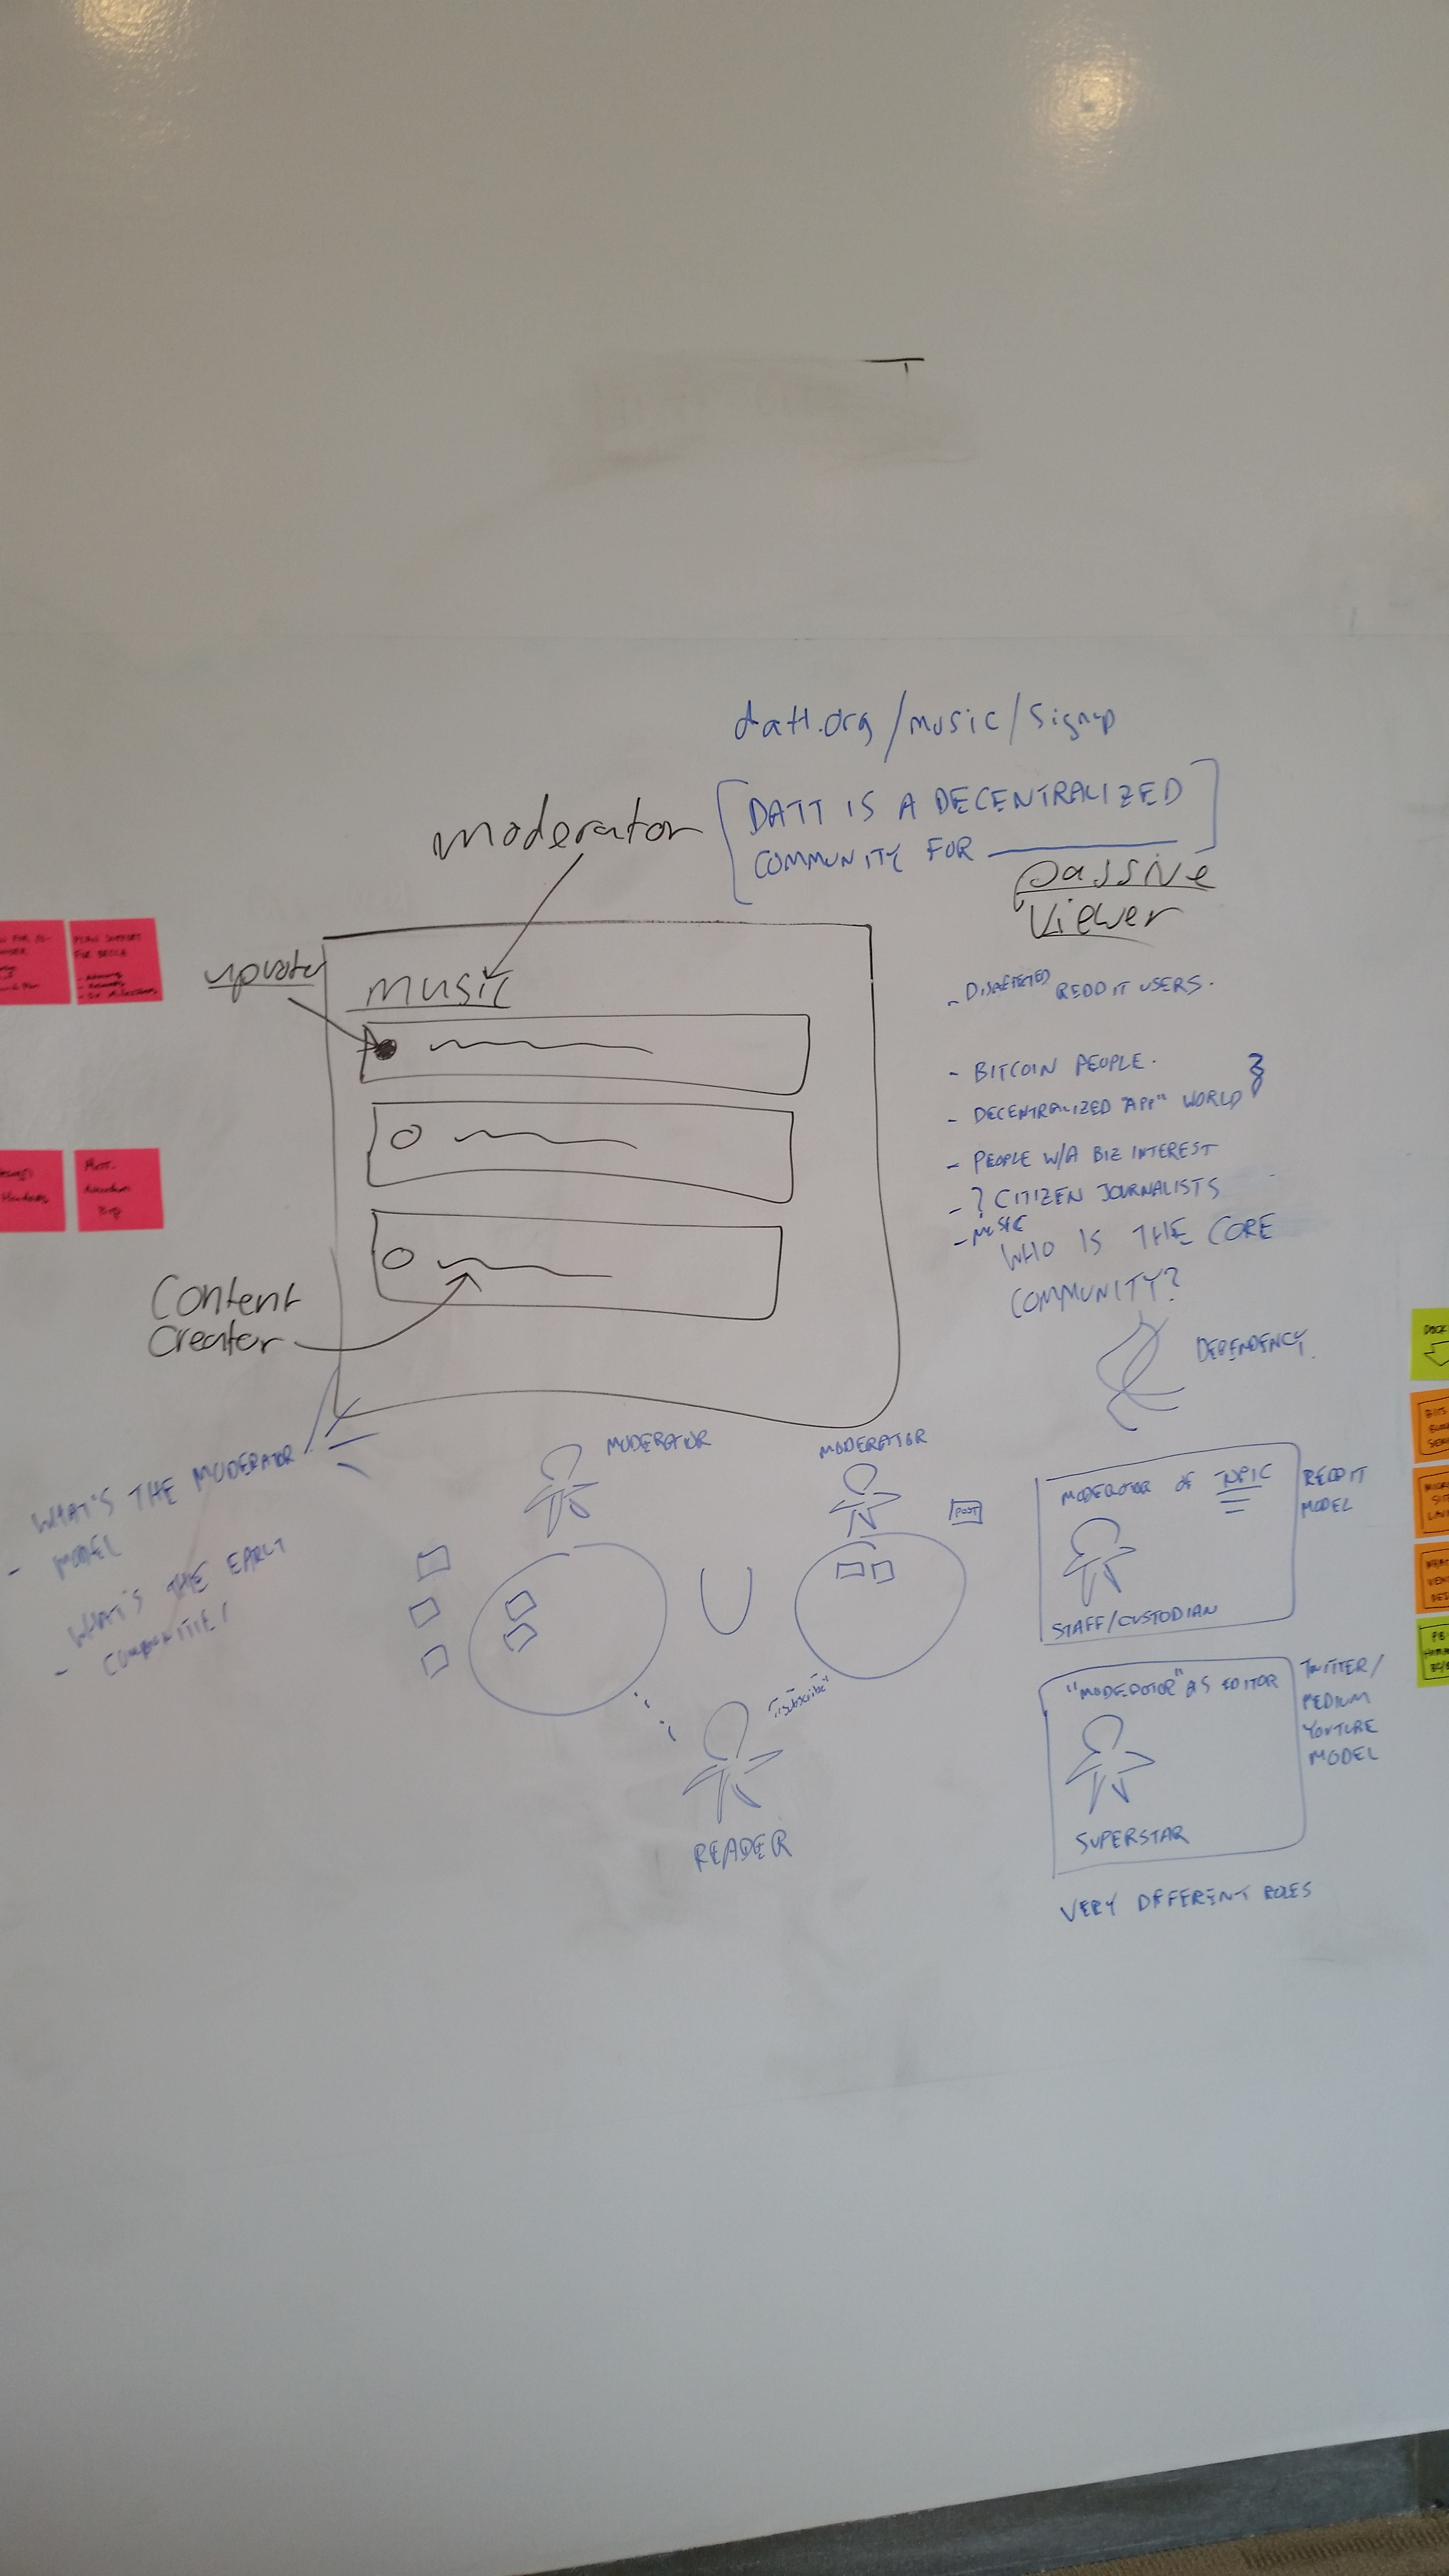 datt.org/music/signup
moderator
[DATT IS A DECENTRALIZED
COMMUNITY FOR ____]
passive
viewer
upvoter
music
Content
Creator
- DISAFFECTED REDDIT USERS.
- BITCOIN PEOPLE.
- DECENTRALIZED "APP" WORLD
- PEOPLE W/A BIZ INTEREST
- ? CITIZEN JOURNALISTS
- MUSIC
WHO IS THE CORE
COMMUNITY?
DEPENDENCY.
- WHAT'S THE MODERATOR
MODEL
- WHAT'S THE EARLY
COMMUNITIES
MODERATOR
MODERATOR
POST
"subscribe"
READER
MODERATOR OF TOPIC
STAFF/CUSTODIAN
REDDIT
MODEL
"MODERATOR" AS EDITOR
SUPERSTAR
TWITTER/
MEDIUM
YOUTUBE
MODEL
VERY DIFFERENT ROLES